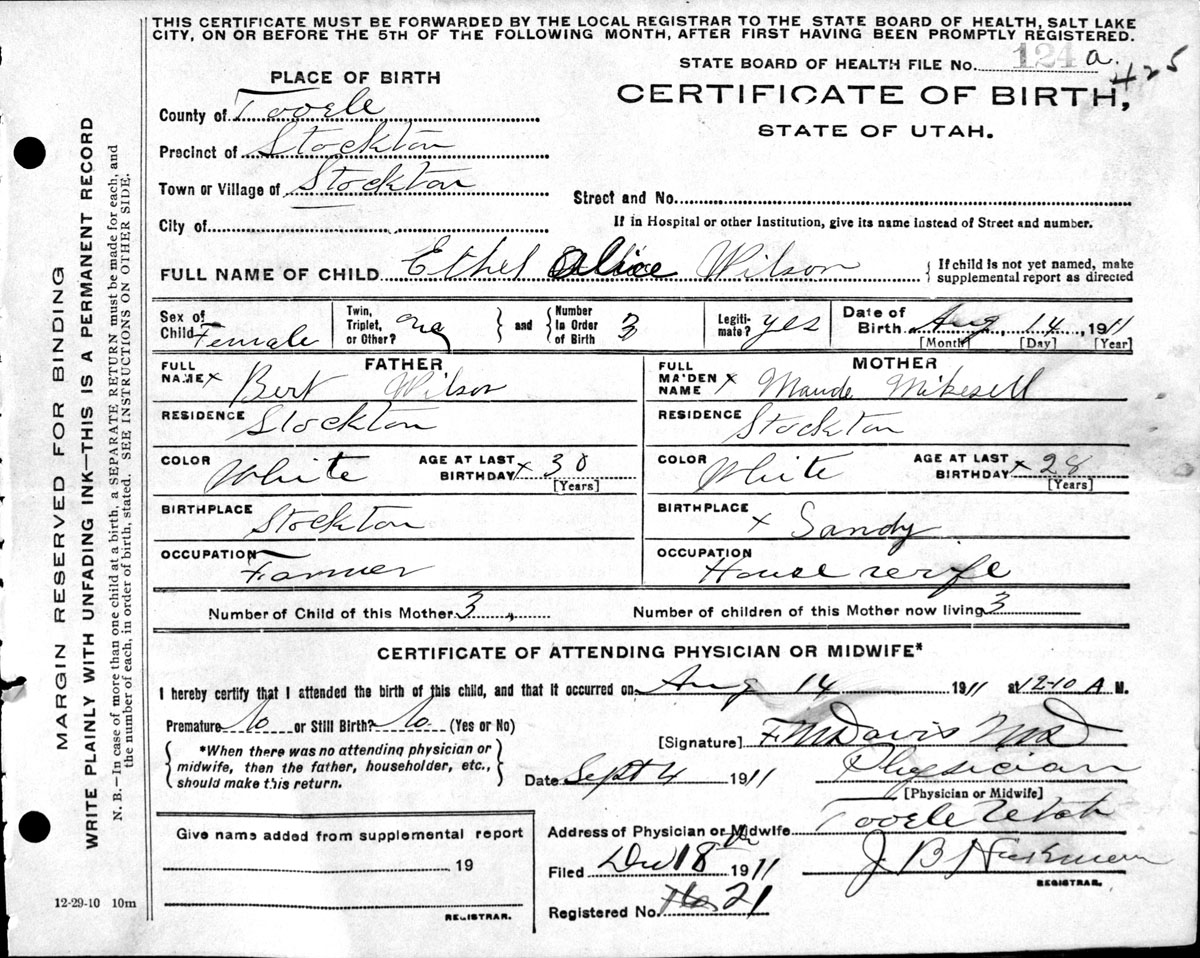 THIS CERTIFICATE MUST BE FORWARDED BY THE LOCAL REGISTRAR TO THE STATE BOARD OF HEALTH, SALT LAKE
CITY, ON OR BEFORE THE 5TH OF THE FOLLOWING MONTH, AFTER FIRST HAVING BEEN PROMPTLY REGISTERED.
STATE BOARD OF HEALTH FILE No. 124 a. 425
PLACE OF BIRTH
CERTIFICATE OF BIRTH,
STATE OF UTAH.
County of Tooele
Precinct of Stockton
Town or Village of Stockton
Street and No.
City of
If in Hospital or other Institution, give its name instead of Street and number.
FULL NAME OF CHILD Ethel Alice Wilson
{ If child is not yet named, make
supplemental report as directed
Sex of Child Female
Twin, Triplet, or Other? } and { Number In Order of Birth 3
Legiti- mate? yes
Date of Birth Aug 14, 1911
[Month] [Day] [Year]
FATHER
FULL NAME x Bert Wilson
MOTHER
FULL MAIDEN NAME x Maude Mikesell
RESIDENCE Stockton
RESIDENCE Stockton
COLOR White AGE AT LAST BIRTHDAY x 30 [Years]
COLOR White AGE AT LAST BIRTHDAY x 28 [Years]
BIRTHPLACE Stockton
BIRTHPLACE x Sandy
OCCUPATION Farmer
OCCUPATION House wife
Number of Child of this Mother 3
Number of children of this Mother now living 3
CERTIFICATE OF ATTENDING PHYSICIAN OR MIDWIFE*
I hereby certify that I attended the birth of this child, and that it occurred on Aug 14 1911 at 12-10 A M.
Premature No or Still Birth? No (Yes or No)
*When there was no attending physician or
midwife, then the father, householder, etc.,
should make this return.
[Signature] F M Davis MD
Date Sept 4 1911 Physician
[Physician or Midwife]
Address of Physician or Midwife Tooele Utah
Give name added from supplemental report
19
REGISTRAR.
Filed Dec 18th 1911
J B
REGISTRAR.
Registered No. 21
12-29-10 10m
MARGIN RESERVED FOR BINDING
WRITE PLAINLY WITH UNFADING INK—THIS IS A PERMANENT RECORD
N. B.—In case of more than one child at a birth, a SEPARATE RETURN must be made for each, and
the number of each, in order of birth, stated. SEE INSTRUCTIONS ON OTHER SIDE.